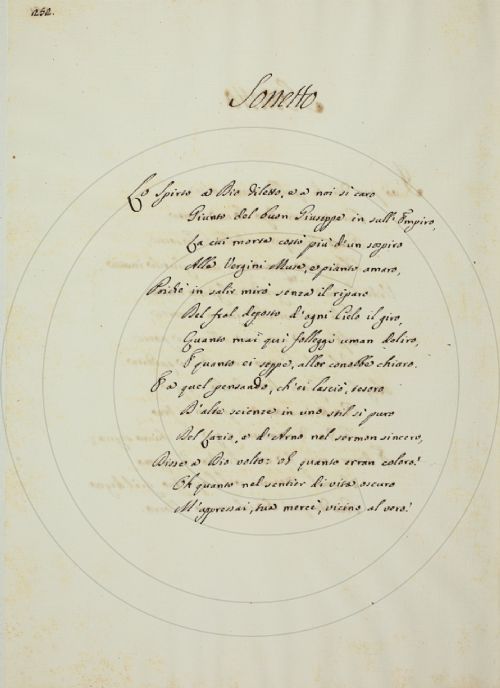 252.
Sonetto
Lo Spirto a Dio diletto, e a noi si caro
Giunto del buon Giuseppe in sull' Empiro,
La cui morte costò più d'un sospiro
Alle Vergini Muse, e pianto amaro,
Poichè in salir mirò senza il riparo
Del fral deposto d'ogni Cielo il giro,
Quanto mai qui folleggi uman deliro,
E quanto ei seppe, allor conobbe chiaro.
E a quel pensando, ch'ei lasciò, tesoro
D'alte scienze in uno stil sì puro
Del Lazio, e d'Arno nel sermon sincero,
Disse a Dio volto: oh quanto erran coloro!
Oh quanto nel sentier di vita oscuro
M'appressai, tua mercè, vicino al vero!